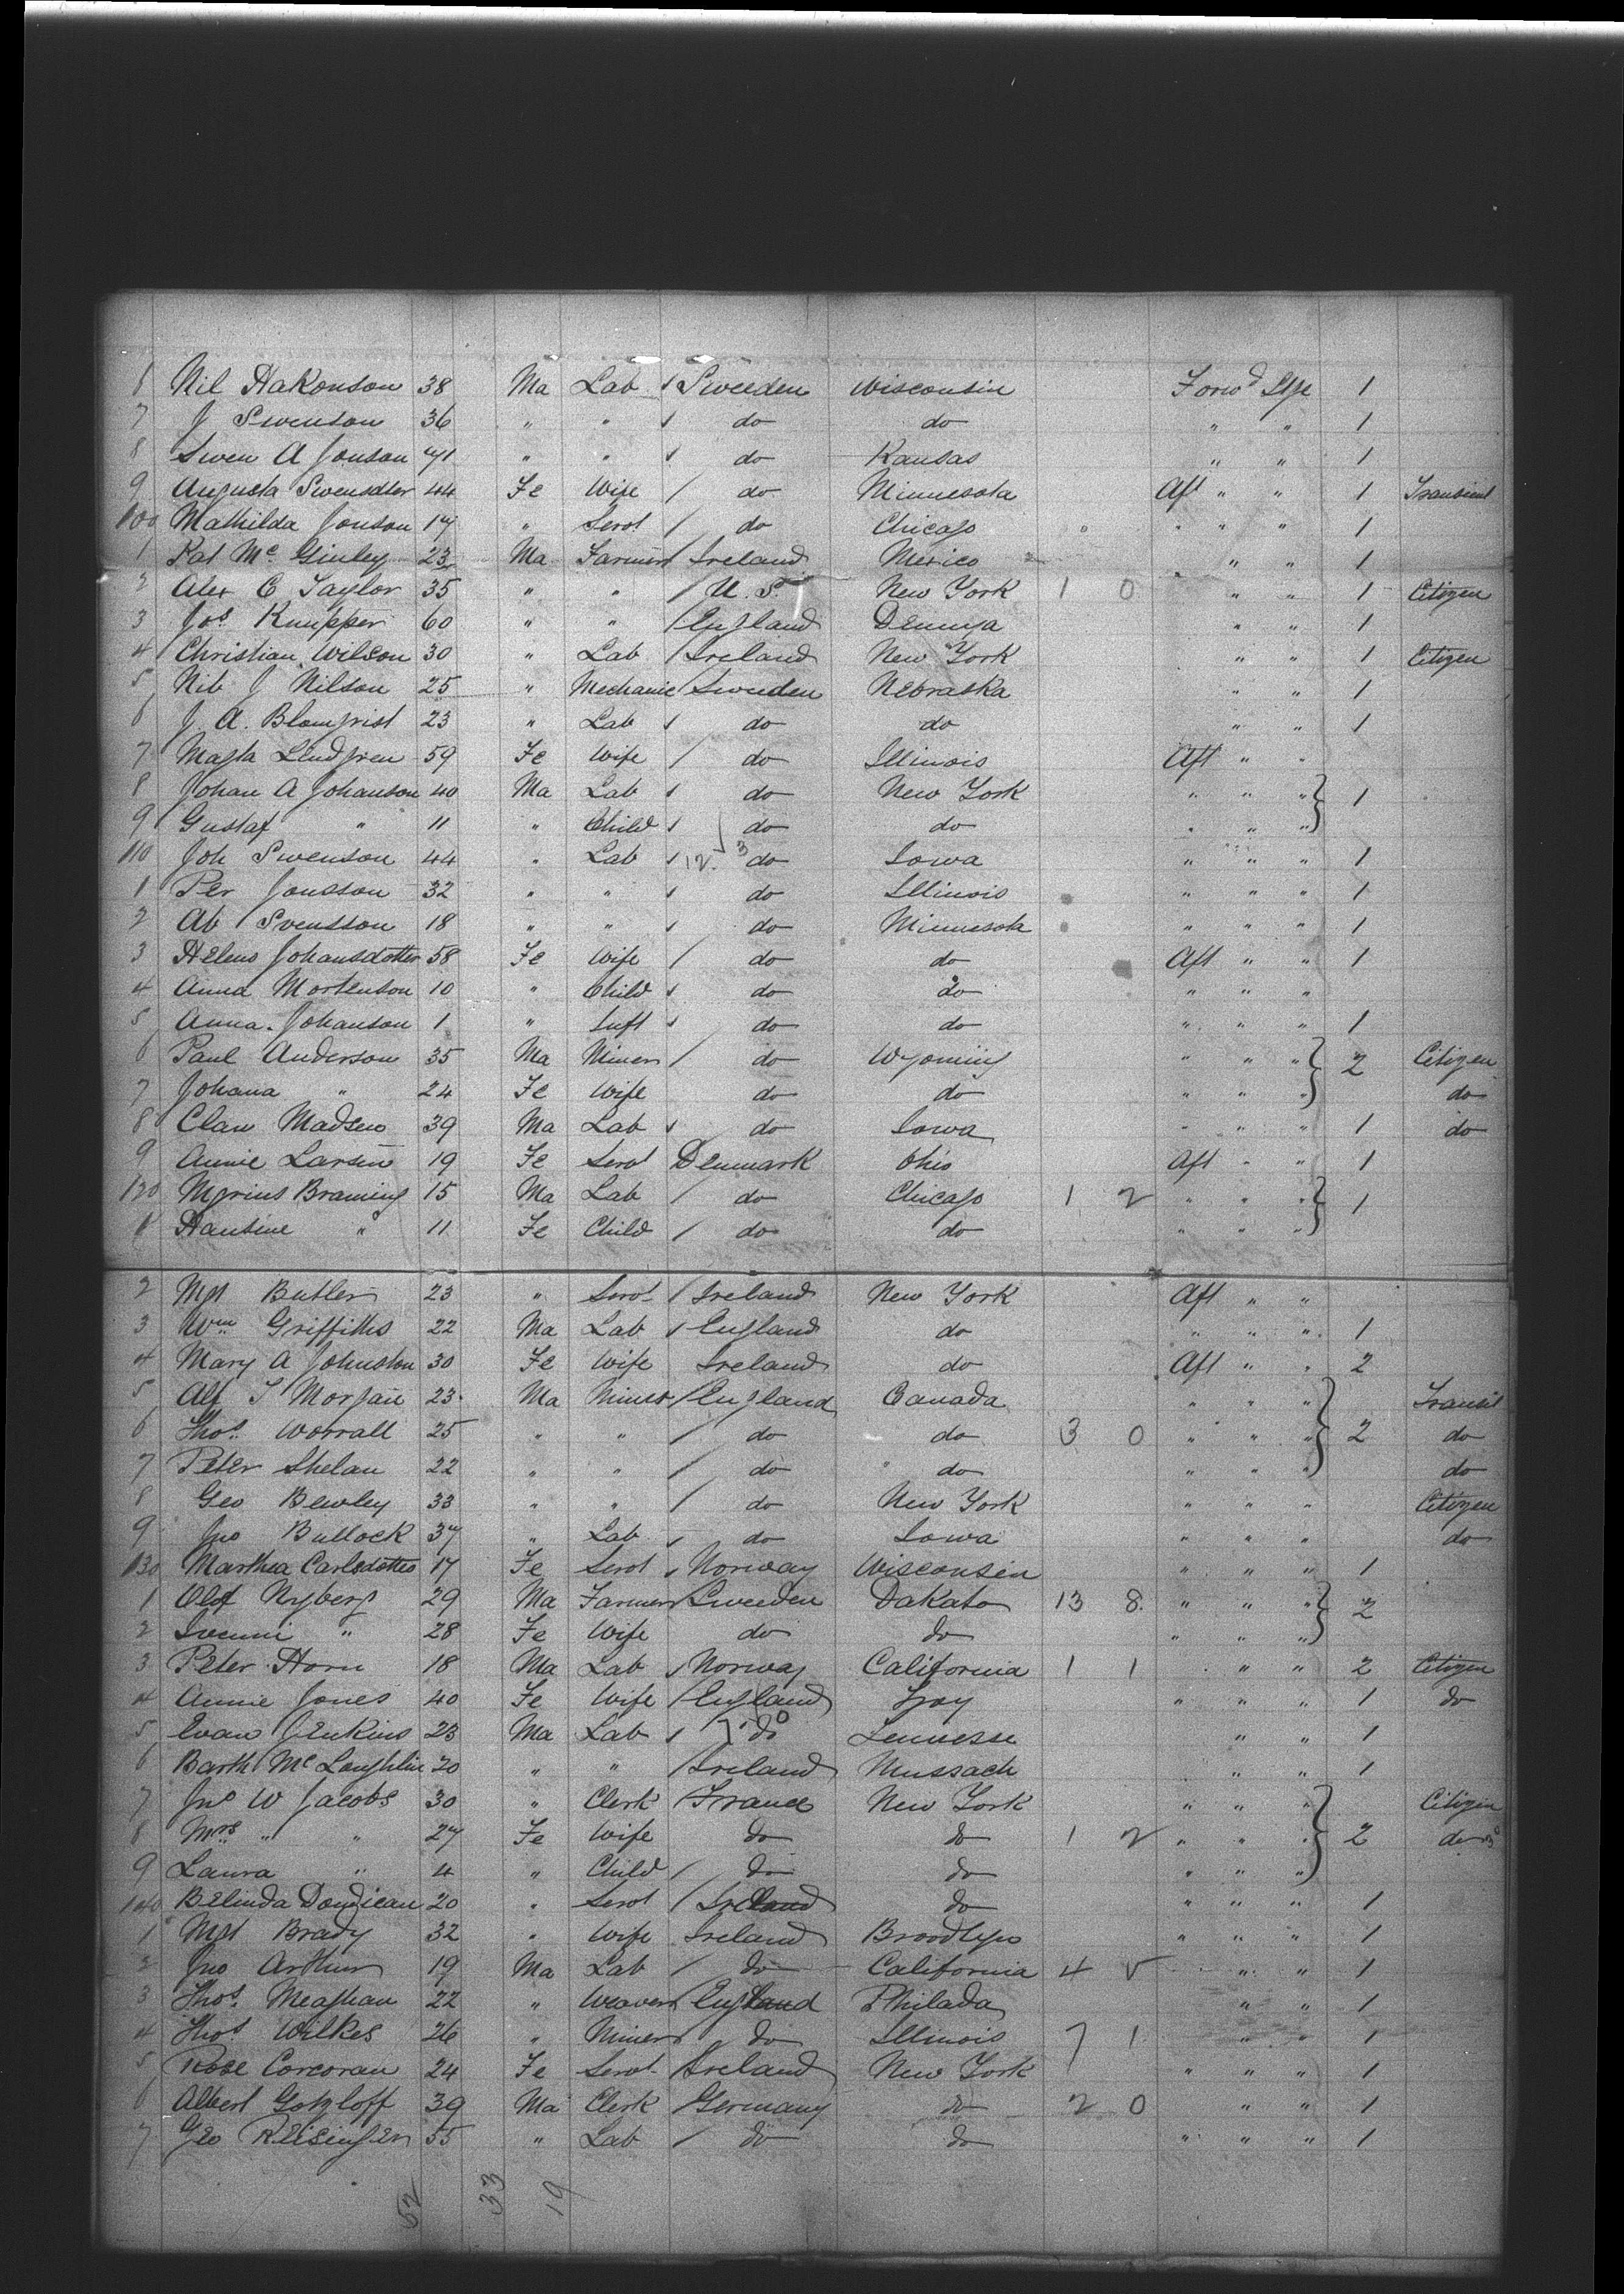 6 Nil Hakonson 38 Ma Lab Sweeden Wisconsin Forwd Stge 1
7 J Swenson 36 " " do do " " 1
8 Swen A Jonson 41 " " do Kansas " " 1
9 Augusta Swensdter 44 Fe Wife / do Minnesota Aft " " 1 Transient
100 Mathilda Jonson 17 " Servt / do Chicago " " " 1
1 Pat Mc Ginley 23 Ma Farmer / Ireland Mexico " " 1
2 Alex C Taylor 35 " " / U. S. New York 1 0 " " 1 Citizen
3 Jos. Knupper 60 " " / England " " 1
4 Christian Wilson 30 " Lab / Ireland New York " " 1 Citizen
5 Nils J Nilson 25 " Mechanic / Sweeden Nebraska " " 1
6 J. A. Blomqvist 23 " Lab do do " " 1
7 Magta Lindgren 59 Fe Wife / do Illinois Aft " "
8 Johan A Johanson 40 Ma Lab do New York " " " } 1
9 Gustaf " 11 " Child do do " " "
110 Joh Swenson 44 " Lab 12 3 do Iowa " " " 1
1 Per Jonsson 32 " " do Illinois " " " 1
2 Ab Svensson 18 " " do Minnesota " " " 1
3 Helena Johansdotter 58 Fe Wife / do do Aft " " 1
4 Anna Mortenson 10 " Child do do " " "
5 Anna Johanson 1 " Inft do do " " " 1
6 Paul Anderson 35 Ma Miner / do Wyoming " " " } 2 Citizen
7 Johana " 24 Fe Wife do do " " " do
8 Claw Madsen 39 Ma Lab do Iowa " " " 1 do
9 Annie Larsen 19 Fe Servt Denmark Ohio Aft " " 1
120 Braming 15 Ma Lab / do Chicago 1 2 " " " } 1
1 Hansine " 11 Fe Child / do do " " "
2 Mgt Butler 23 " Servt / Ireland New York Aft " "
3 Wm Griffiths 22 Ma Lab England do " " " 1
4 Mary A Johnston 30 Fe Wife Ireland do Aft " " 2
5 Alf T Morgan 23 Ma Miner / England Canada " " " Transit
6 Thos. Worrall 25 " " / do do 3 0 " " " } 2 do
7 Peter Shelan 22 " " / do do " " " do
8 Geo Bewley 33 " " / do New York " " " Citizen
9 Jno Bullock 37 " Lab do Iowa " " " do
130 Marthea Carlsdotter 17 Fe Servt Norway Wisconsin " " " 1
1 Olof Nyberg 29 Ma Farmer Sweeden Dakato 13 8 " " " } 2
2 " 28 Fe Wife do do " " "
3 Peter Horn 18 Ma Lab Norway California 1 1 " " 2 Citizen
4 Annie Jones 40 Fe Wife / England Troy " " " 1 do
5 Evan Jenkins 23 Ma Lab 7 0 do Tennesse " " 1
6 Barth Mc Loughlin 20 " " / Ireland Mussach " " 1
7 Jno W Jacobs 30 " Clerk / France New York " " " Citizen
8 Mrs " " 27 Fe Wife do do 1 2 " " " } 2 do
9 Laura " 4 " Child / do do " " "
140 Belinda 20 " Servt / Ireland do " " " 1
1 Mgt Brady 32 " Wife Ireland Broodlyn " " " 1
2 Jno Arthur 19 Ma Lab / do California 4 5 " " 1
3 Thos. Meaghan 22 " Weaver England Philada " " 1
4 Thos Wilkes 26 " Miner do Illinois 7 1 " " 1
5 Rose Corcoran 24 Fe Servt / Ireland New York " " " 1
6 Albert Gotzloff 39 Ma Clerk / Germany do 2 0 " " 1
7 Geo Reisinger 55 " Lab / do do " " " 1
52 33 19